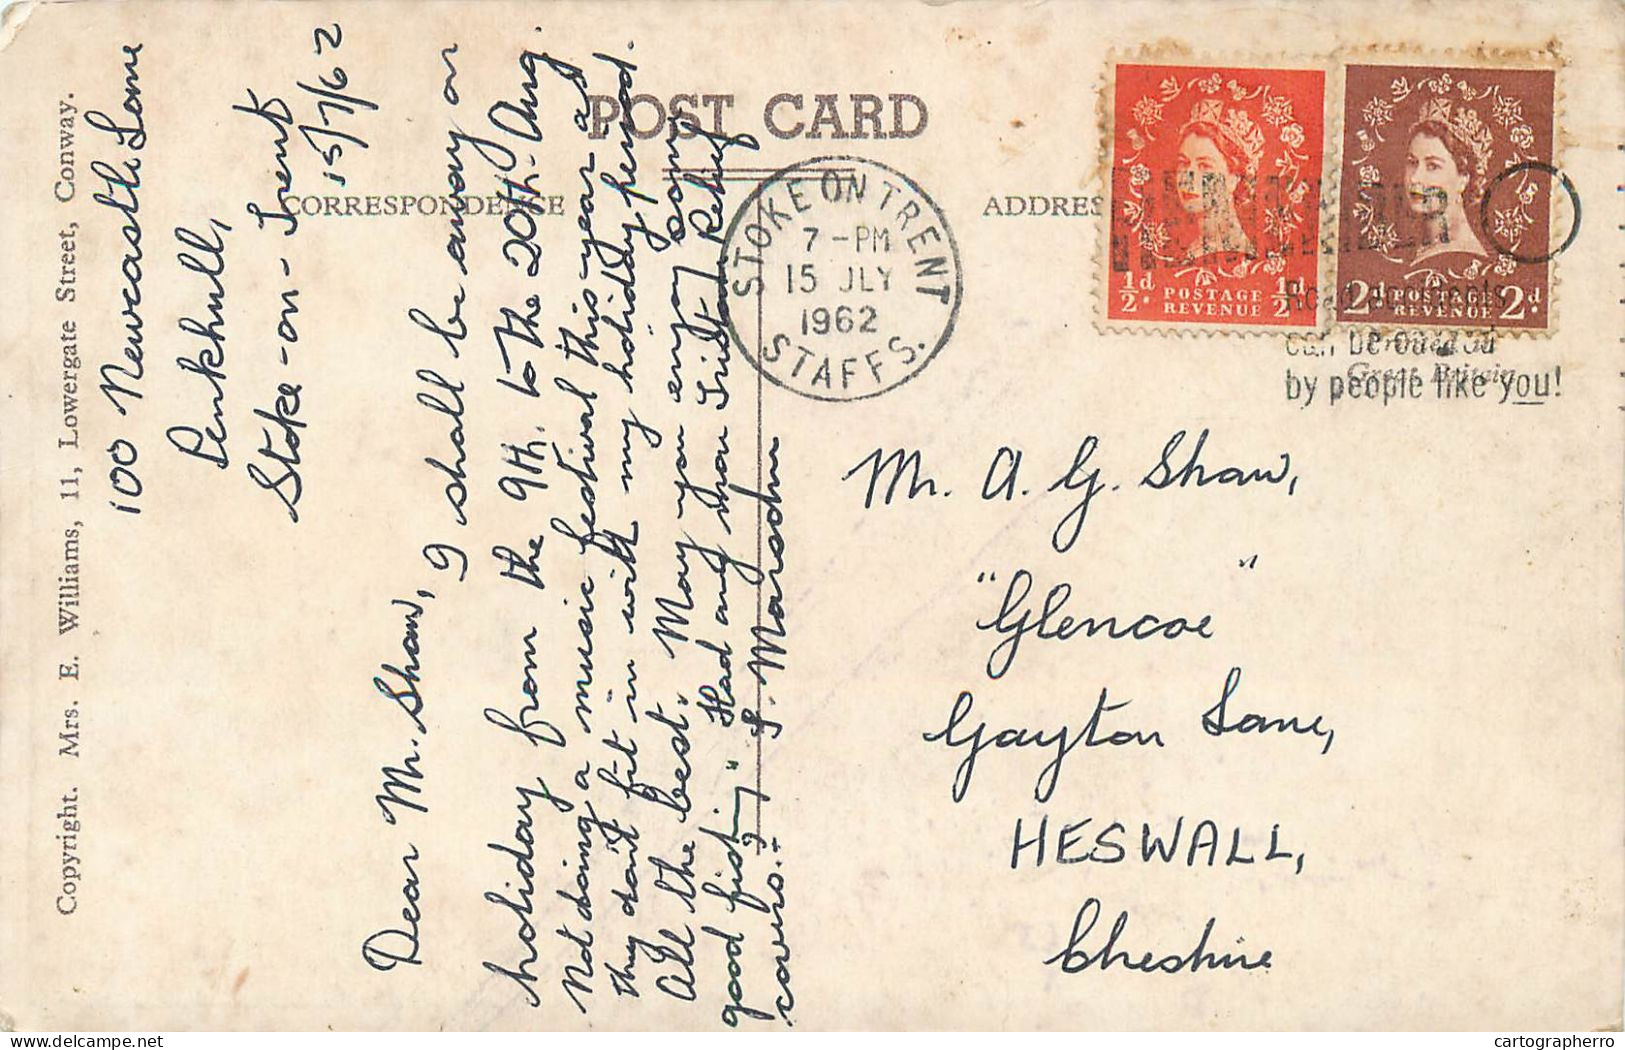 Copyright. Mrs. E. Williams, 11, Lowergate Street, Conway.
POST CARD
CORRESPONDENCE
ADDRES
100 Newcastle Lane
Penkhull,
Stoke-on-Trent
15/7/62
Dear Mr. Shaw,
I shall be away on
holiday from the 9th. to the 20th. Aug.
Not doing a music festival this year as
they don't fit in with my holiday period.
All the best. May you enjoy some
good fishing". Had any more Tristan Relief
covers.:-
J. Marsden
STOKE ON TRENT
7-PM
15 JLY
1962
STAFFS.
REMEMBER
Road accidents
can be caused
by people like you!
½d. POSTAGE REVENUE ½d
2d POSTAGE REVENUE 2d.
Printed in
Great Britain
Mr. A. G. Shaw,
"Glencoe"
Gayton Lane,
HESWALL,
Cheshire
hipstamp.com cartographerro